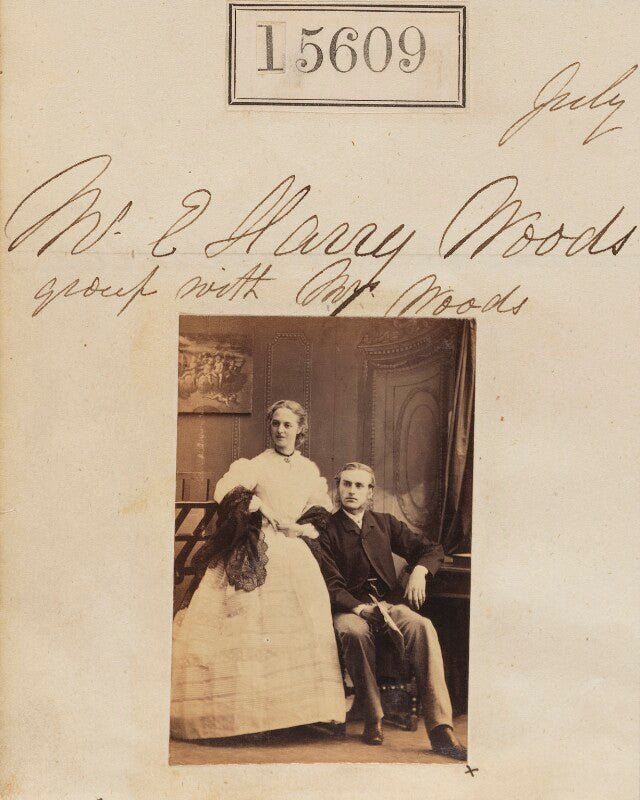 15609
July
Mr. E Harry Woods
group with Mrs. Woods